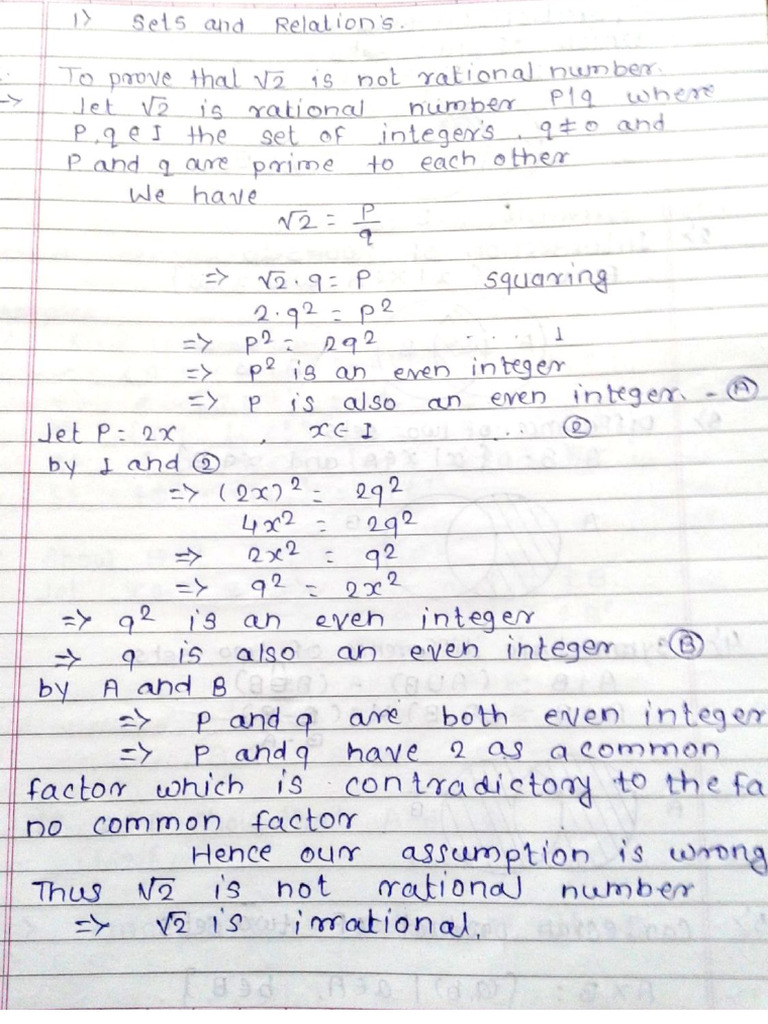 1> Sets and Relation's.
To prove that √2 is not rational number.
-> Let √2 is rational number P/q where
P, q ∈ I the set of integer's. q ≠ 0 and
P and q are prime to each other
We have
√2 = P/q
=> √2 · q = P squaring
2 · q² = P²
=> P² = 2q² ... 1
=> P² is an even integer
=> P is also an even integer. - Ⓐ
Let P = 2x , x ∈ I ... ②
by 1 and ②
=> (2x)² = 2q²
4x² = 2q²
=> 2x² = q²
=> q² = 2x²
=> q² is an even integer
=> q is also an even integer Ⓑ
by A and B
=> P and q are both even integer
=> P and q have 2 as a common
factor which is contradictory to the fa
no common factor
Hence our assumption is wrong
Thus √2 is not rational number
=> √2 is irrational.